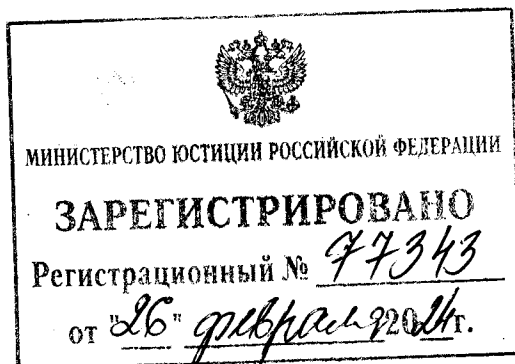 МИНИСТЕРСТВО ЮСТИЦИИ РОССИЙСКОЙ ФЕДЕРАЦИИ
ЗАРЕГИСТРИРОВАНО
Регистрационный № 77343
от "26" февраля 2024г.